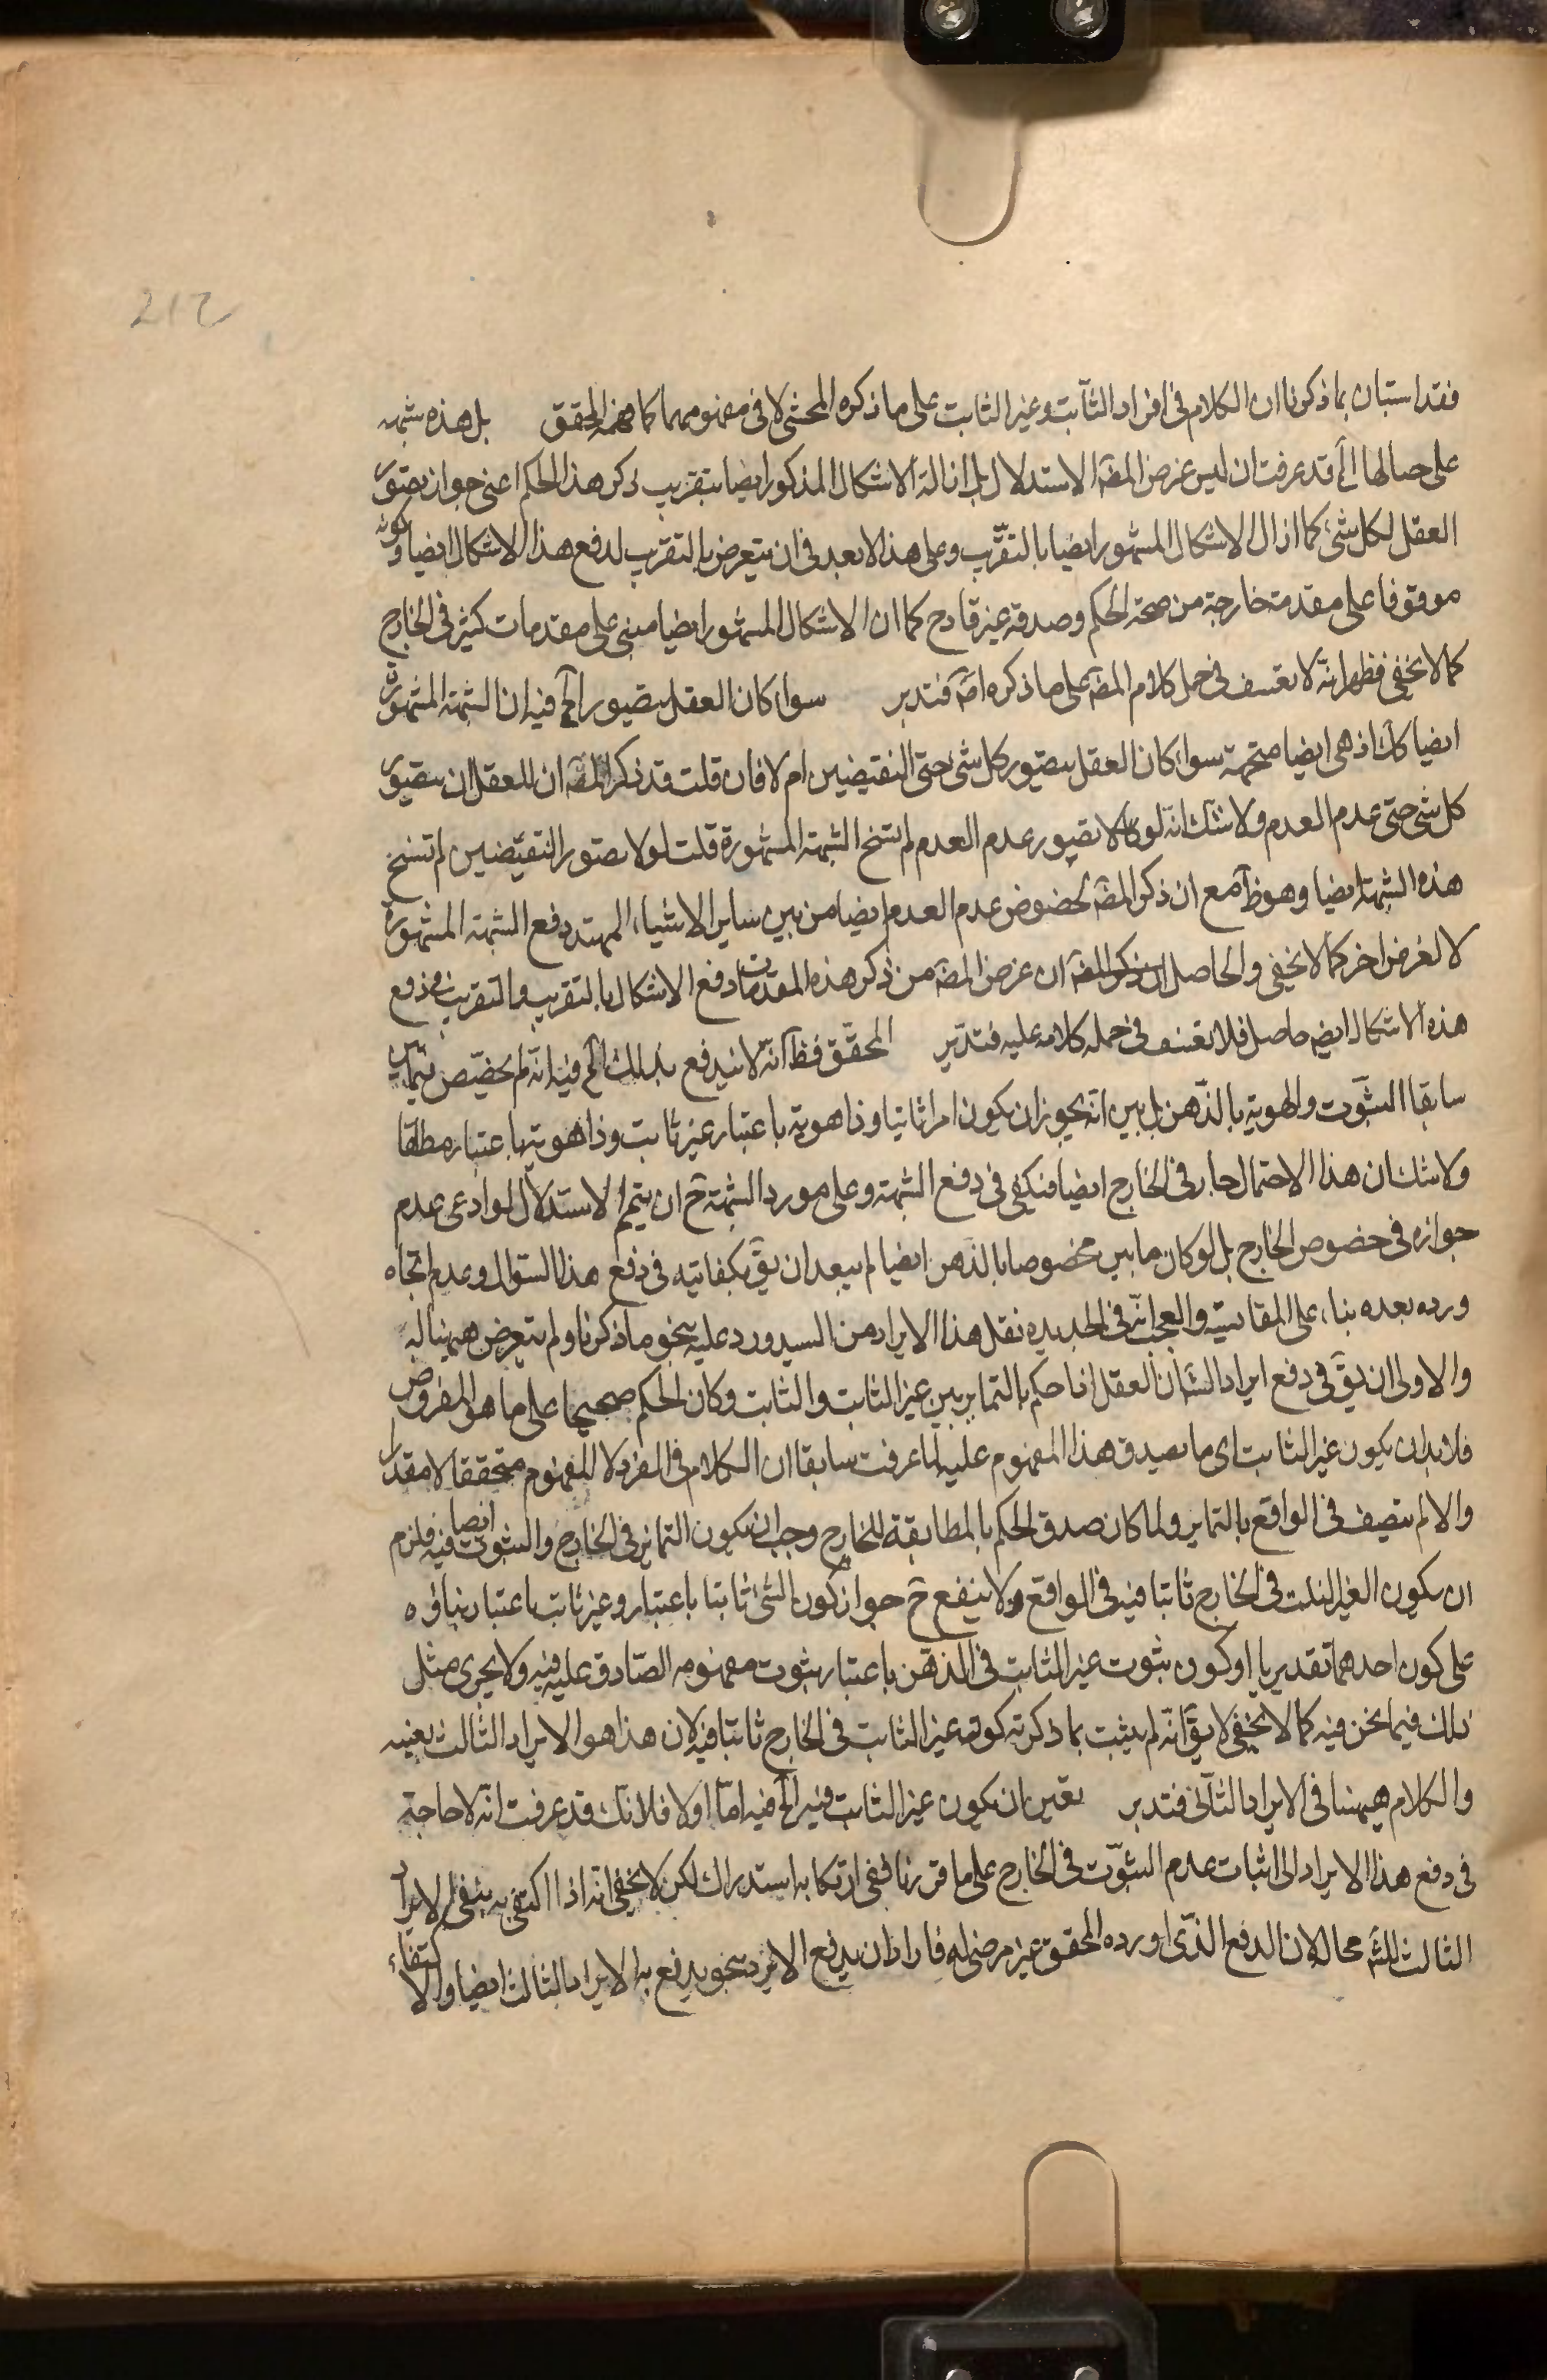 212
فقد استبان بما ذكرنا ان الكلام فى افراد الثابت وغير الثابت على ما ذكره المحشى لا فى مفهومهما كما فهمه المحقق بل هذه شبهه
على حيالها الخ قد عرفت ان ليس غرض المصَ الاستدلال بل ازالة الاشكال المذكور ايضا بتقريب ذكر هذا الحكم اعنى جواز تصور
العقل لكل شئ كما ازال الاشكال المشهور ايضا بالتقرّب وعلى هذا لا بعد فى ان يتعرض بالتقرب لدفع هذا الاشكال ايضا وكونه
موقوفا على مقدمة خارجة من صحة الحكم وصدقه غير قادح كما ان الاشكال المشهور ايضا مبنى على مقدمات كثيرة فى الخارج
كما لا يخفى فظهر انّه لا تعسف فى حمل كلام المصَ على ما ذكره امَ فتدبر سواء كان العقل يتصور الخ فيه ان الشبهة المشهورة
ايضا كك اذ هى ايضا متجهة سواء كان العقل يتصور كل شئ حتى النقيضين ام لا فان قلت قد ذكر المصَ ان للعقل ان يتصور
كل شئ حتى عدم العدم ولا شك انّه لو كان لا يتصور عدم العدم لم تسنح الشبهة المشهورة قلت لو لا يتصور النقيضين لم تسنح
هذه الشبهة ايضا وهو ظَ مع ان ذكر المصَ لخصوص عدم العدم ايضا من بين ساير الاشياء لتمهيد دفع الشبهة المشهورة
لا لغرض اخر كما لا يخفى والحاصل ان ذكر المصَ ان غرض المصَ من ذكر هذه المقدمات دفع الاشكال بالتقريب والتقريب فى دفع
هذه الاشكال ايضَ حاصل فلا تعسف فى حمله كلامه عليه فتدبر المحقّق فظَ انّه لا يندفع بذلك الخ فيه انّه لم يخصّص فيما بين
سابقا الثبوت والهوية بالذّهن بل بين انّه يجوز ان يكون امرا ثابتا وذا هوية باعتبار غير ثابت وذا هوية باعتبار مطلقا
ولا شك ان هذا الاحتمال جار فى الخارج ايضا فيكفى فى دفع الشبهة وعلى مورد الشبهة حَ ان يتمم الاستدلال لو ادعى عدم
جوازه فى خصوص الخارج بل لو كان ما بين مخصوصا بالذّهن ايضا لم يبعد ان يقَ بكفايته فى دفع هذا السؤال وعدم اتجاه
ورده بعده بناء على المقايسة والعجب انّه فى الجديدة نقل هذا الايراد من السيد ورد عليه بنحو ما ذكرنا ولم يتعرض ههنا له
والاولى ان يقَ فى دفع ايراد الشَ ان العقل اذا حكم بالتمايز بين غير الثابت والثابت وكان الحكم صحيحا على ما هو المفروض
فلا بد ان يكون غير الثابت اى ما يصدق هذا المفهوم عليه لما عرفت سابقا ان الكلام فى الفرد لا المفهوم متحققا لا مقدرا
والا لم يتصف فى الواقع بالتمايز ولما كان صدق الحكم بالمطابقة للخارج وجب ان يكون التمايز فى الخارج والثبوت ايضا فيه فلزم
ان يكون الغير الثابت فى الخارج ثابتا فيه فى الواقع ولا ينفع حَ جواز كون الشئ ثابتا باعتبار وغير ثابت باعتبار بناؤه
على كون احدهما تقديريا او كون ثبوت غير الثابت فى الذهن باعتبار ثبوت مفهومه الصّادق عليه فيه ولا يجرى مثل
ذلك فيما نحن فيه كما لا يخفى لا يقَ انّه لم يثبت بما ذكرته كون غير الثابت فى الخارج ثابتا فيه لان هذا هو الايراد الثالث بعينه
والكلام ههنا فى الايراد الثانى فتدبر تعين ان يكون غير الثابت فيه الخ فيه امّا اولا فلانك قد عرفت انّه لا حاجة
فى دفع هذا الايراد الى اثبات عدم الثبوت فى الخارج على ما قررنا ففى ارتكابه استدراك لكن لا يخفى انه اذا اكتفى به يبقى الايراد
الثالث للشَ محاله لان الدفع الذّى اورده المحقق غير مرضى له فاراد ان يدفع الايراد بنحو يدفع به الايراد الثالث ايضا والاكتفاء